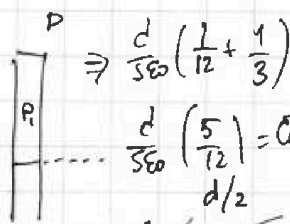 D
⇒ d/Sε₀ (1/12 + 1/3)
P₁
d/Sε₀ (5/12) =
d/2